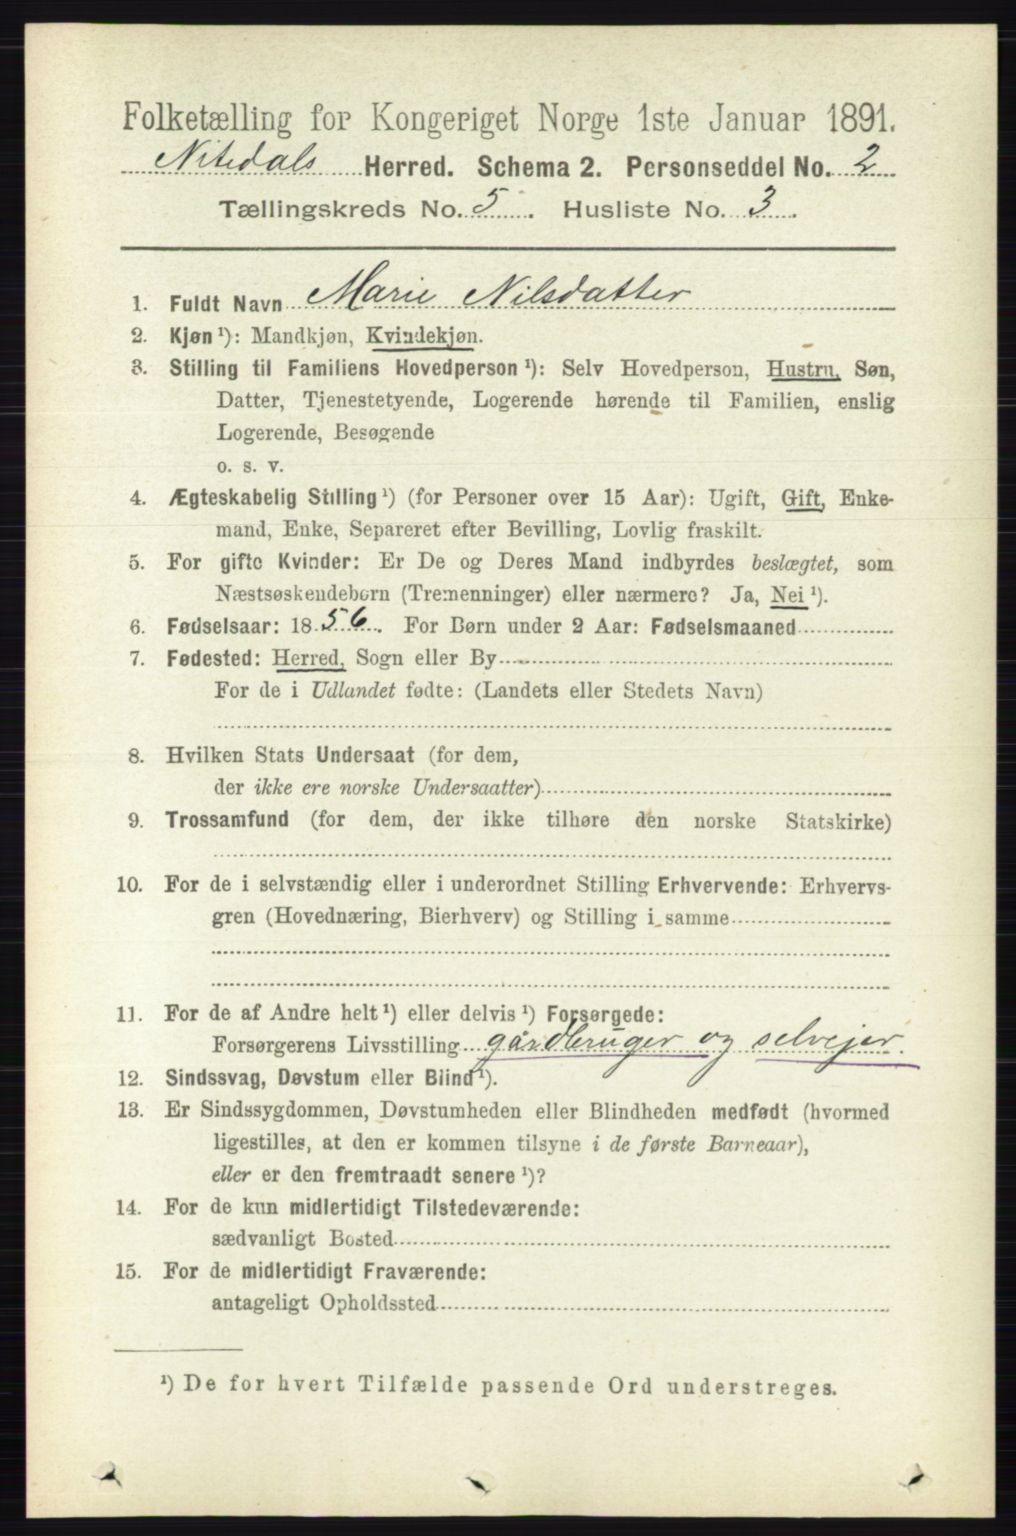 Folketælling for Kongeriget Norge 1ste Januar 1891.
Nitedals Herred. Schema 2. Personseddel No. 2
Tællingskreds No. 5. Husliste No. 3.
1. Fuldt Navn Marie Nilsdatter
2. Kjøn ¹): Mandkjøn, Kvindekjøn.
3. Stilling til Familiens Hovedperson ¹): Selv Hovedperson, Hustru, Søn,
Datter, Tjenestetyende, Logerende hørende til Familien, enslig
Logerende, Besøgende
o. s. v.
4. Ægteskabelig Stilling ¹) (for Personer over 15 Aar): Ugift, Gift, Enke-
mand, Enke, Separeret efter Bevilling, Lovlig fraskilt.
5. For gifte Kvinder: Er De og Deres Mand indbyrdes beslægtet, som
Næstsøskendebørn (Tremenninger) eller nærmere? Ja, Nei ¹).
6. Fødselsaar: 1856. For Børn under 2 Aar: Fødselsmaaned
7. Fødested: Herred, Sogn eller By
For de i Udlandet fødte: (Landets eller Stedets Navn)
8. Hvilken Stats Undersaat (for dem,
der ikke ere norske Undersaatter)
9. Trossamfund (for dem, der ikke tilhøre den norske Statskirke)
10. For de i selvstændig eller i underordnet Stilling Erhvervende: Erhvervs-
gren (Hovednæring, Bierhverv) og Stilling i samme
11. For de af Andre helt ¹) eller delvis ¹) Forsørgede:
Forsørgerens Livsstilling gårdbruger og selvejer.
12. Sindssvag, Døvstum eller Blind ¹).
13. Er Sindssygdommen, Døvstumheden eller Blindheden medfødt (hvormed
ligestilles, at den er kommen tilsyne i de første Barneaar),
eller er den fremtraadt senere ¹)?
14. For de kun midlertidigt Tilstedeværende:
sædvanligt Bosted
15. For de midlertidigt Fraværende:
antageligt Opholdssted
¹) De for hvert Tilfælde passende Ord understreges.